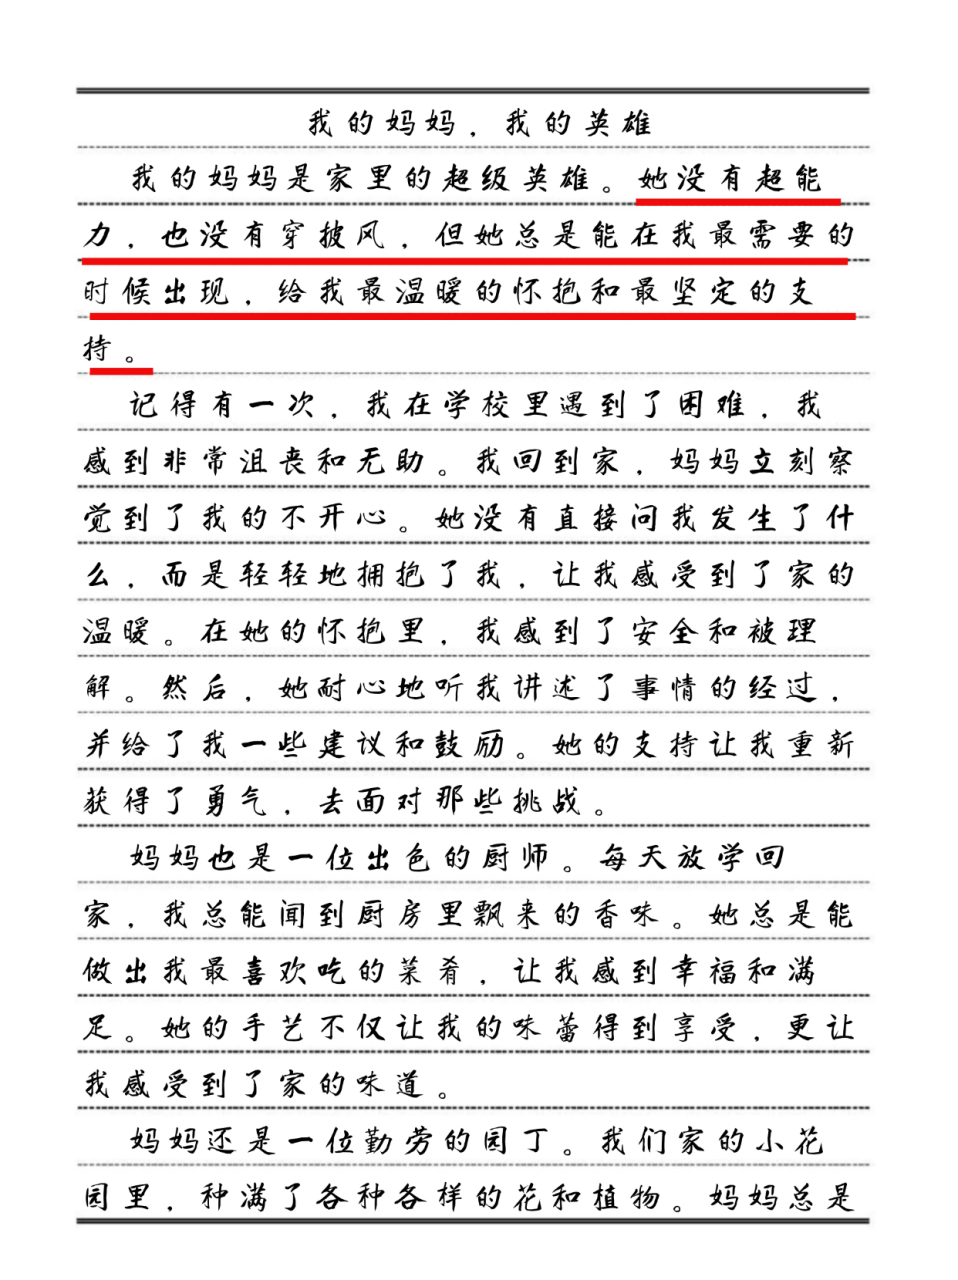 我的妈妈，我的英雄
我的妈妈是家里的超级英雄。她没有超能
力，也没有穿披风，但她总是能在我最需要的
时候出现，给我最温暖的怀抱和最坚定的支
持。
记得有一次，我在学校里遇到了困难，我
感到非常沮丧和无助。我回到家，妈妈立刻察
觉到了我的不开心。她没有直接问我发生了什
么，而是轻轻地拥抱了我，让我感受到了家的
温暖。在她的怀抱里，我感到了安全和被理
解。然后，她耐心地听我讲述了事情的经过，
并给了我一些建议和鼓励。她的支持让我重新
获得了勇气，去面对那些挑战。
妈妈也是一位出色的厨师。每天放学回
家，我总能闻到厨房里飘来的香味。她总是能
做出我最喜欢吃的菜肴，让我感到幸福和满
足。她的手艺不仅让我的味蕾得到享受，更让
我感受到了家的味道。
妈妈还是一位勤劳的园丁。我们家的小花
园里，种满了各种各样的花和植物。妈妈总是